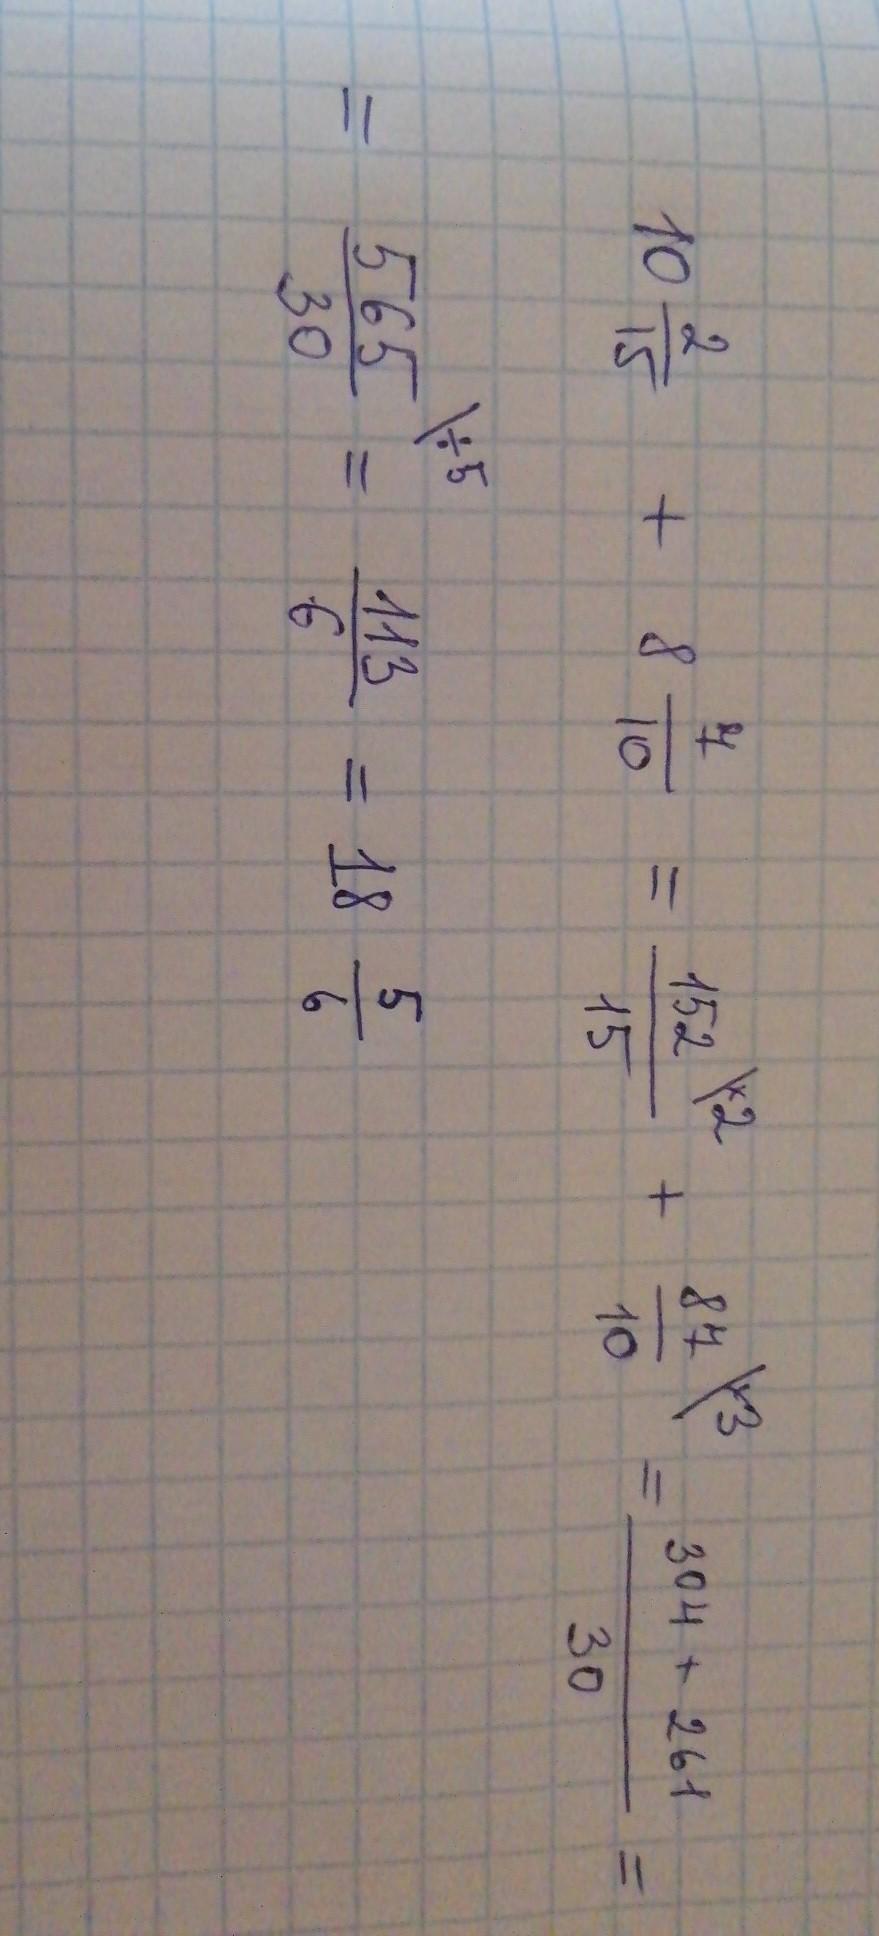 10 2/15 + 8 7/10 = 152/15 \×2 + 87/10 \×3 = (304 + 261)/30 =
= 565/30 \÷5 = 113/6 = 18 5/6